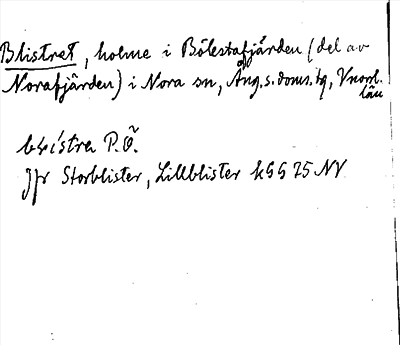 Blistret, holme i Bölestafjärden (del av
Norafjärden) i Nora sn, Ång.s. doms. tg, Vnorrl.
län
blistra P.Ö.
Jfr Storblister, Lillblister kSS 75 NV